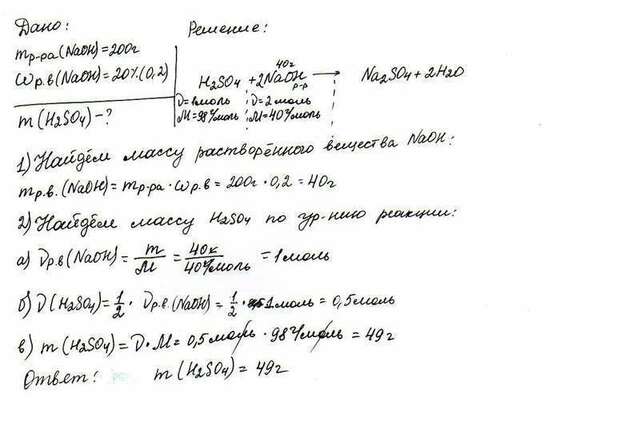 Дано:
Решение:
mр-ра(NaOH)=200г
ωр.в(NaOH)=20%(0,2)
m(H2SO4)-?
40г
H2SO4 + 2NaOH → Na2SO4 + 2H2O
р-р
ν=1моль ν=2моль
M=98г/моль M=40г/моль
1) Найдём массу растворённого вещества NaOH:
mр.в.(NaOH) = mр-ра · ωр.в = 200г · 0,2 = 40г
2) Найдём массу H2SO4 по ур-нию реакции:
а) νр.в(NaOH) = m/M = 40г/40г/моль = 1моль
б) ν(H2SO4) = 1/2 · νр.в(NaOH) = 1/2 · 1моль = 0,5моль
в) m(H2SO4) = ν · M = 0,5моль · 98г/моль = 49г
Ответ: m(H2SO4) = 49г